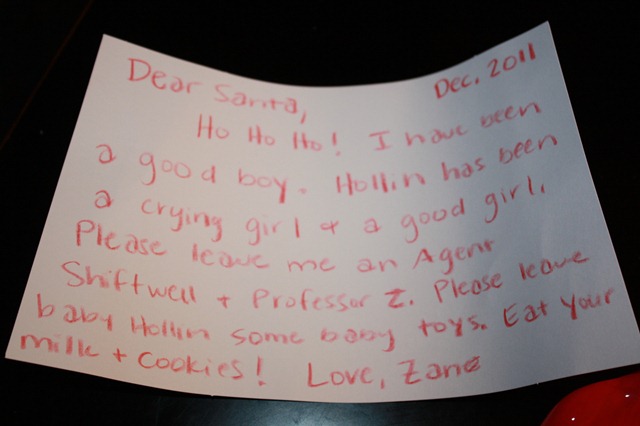 Dear Santa, Dec. 2011
Ho Ho Ho! I have been
a good boy. Hollin has been
a crying girl + a good girl.
Please leave me an Agent
Shiftwell + Professor Z. Please leave
baby Hollin some baby toys. Eat your
milk + cookies! Love, Zane